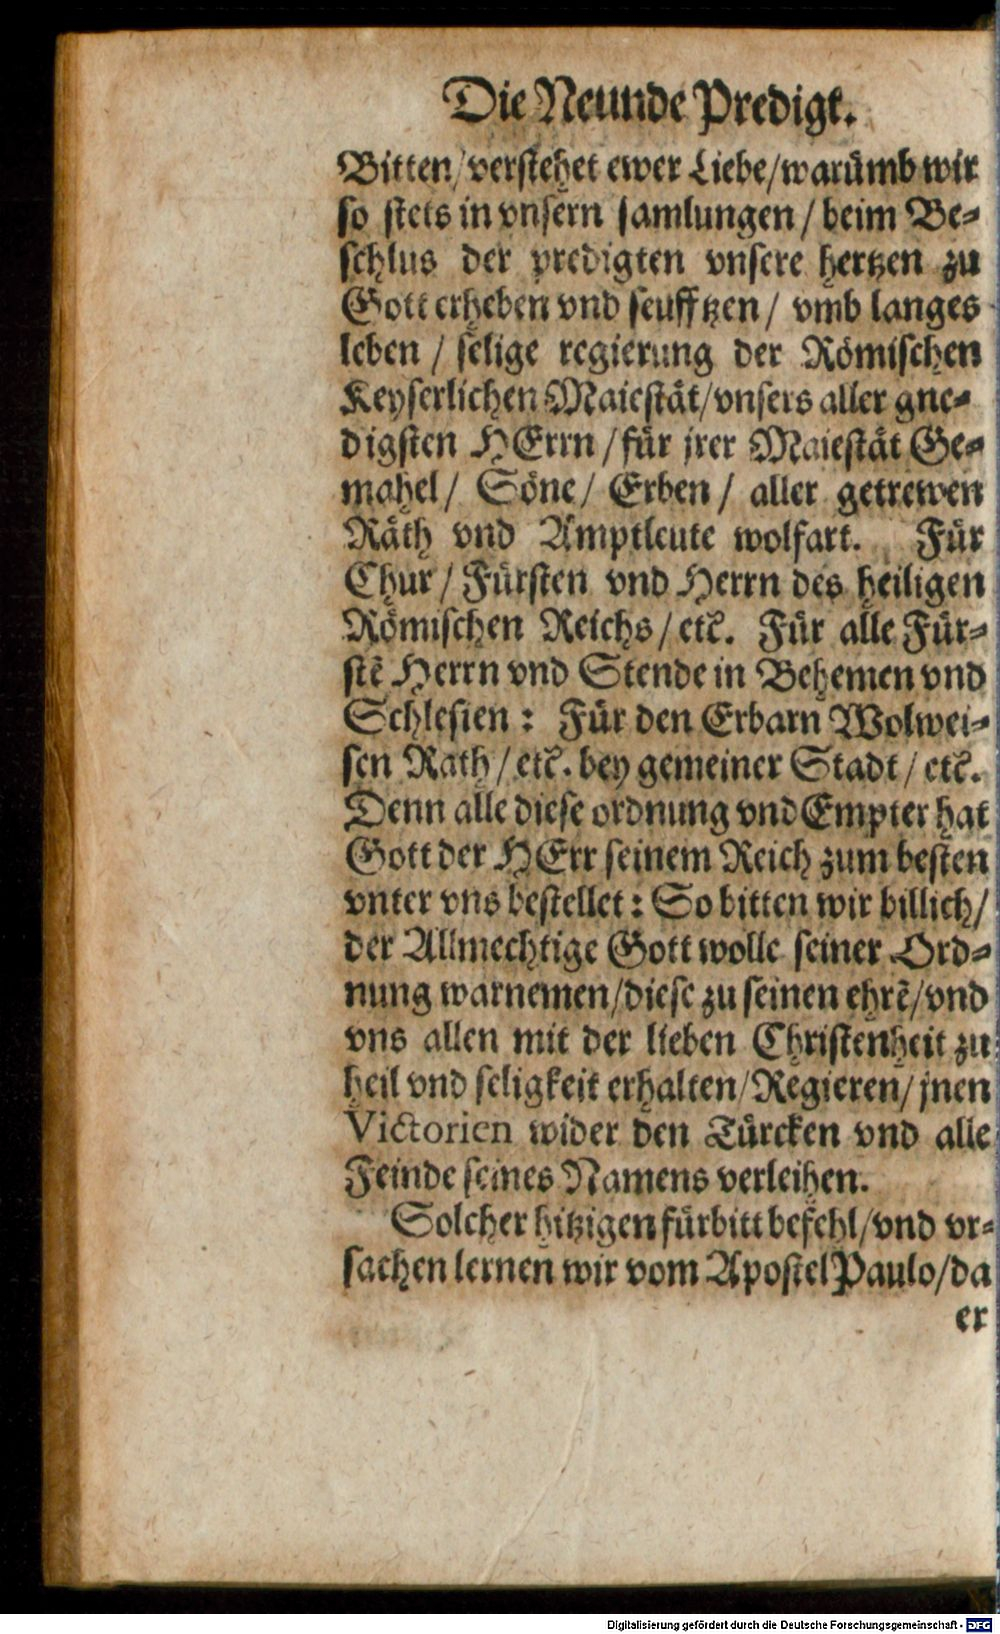 Die Neunde Predigt.
Bitten/verstehet ewer Liebe/warümb wir
so stets in vnsern samlungen / beim Be-
schlus der predigten vnsere hertzen zu
Gott erheben vnd seufftzen / vmb langes
leben / selige regierung der Römischen
Keyserlichen Maiestät/vnsers aller gne-
digsten HErrn /für jrer Maiestät Ge-
mahel / Söne / Erben / aller getrewen
Räth vnd Amptleute wolfart. Für
Chur / Fürsten vnd Herrn des heiligen
Römischen Reichs / etc. Für alle Für-
stē Herrn vnd Stende in Behemen vnd
Schlesien : Für den Erbarn Wolwei-
sen Rath / etc. bey gemeiner Stadt / etc.
Denn alle diese ordnung vnd Empter hat
Gott der HErr seinem Reich zum besten
vnter vns bestellet : So bitten wir billich/
der Allmechtige Gott wolle seiner Ord-
nung warnemen/diese zu seinen ehrē/vnd
vns allen mit der lieben Christenheit zu
heil vnd seligkeit erhalten/Regieren/jnen
Victorien wider den Türcken vnd alle
Feinde seines Namens verleihen.
Solcher hitzigen fürbitt befehl/vnd vr-
sachen lernen wir vom Apostel Paulo/da
er
Digitalisierung gefördert durch die Deutsche Forschungsgemeinschaft - DFG